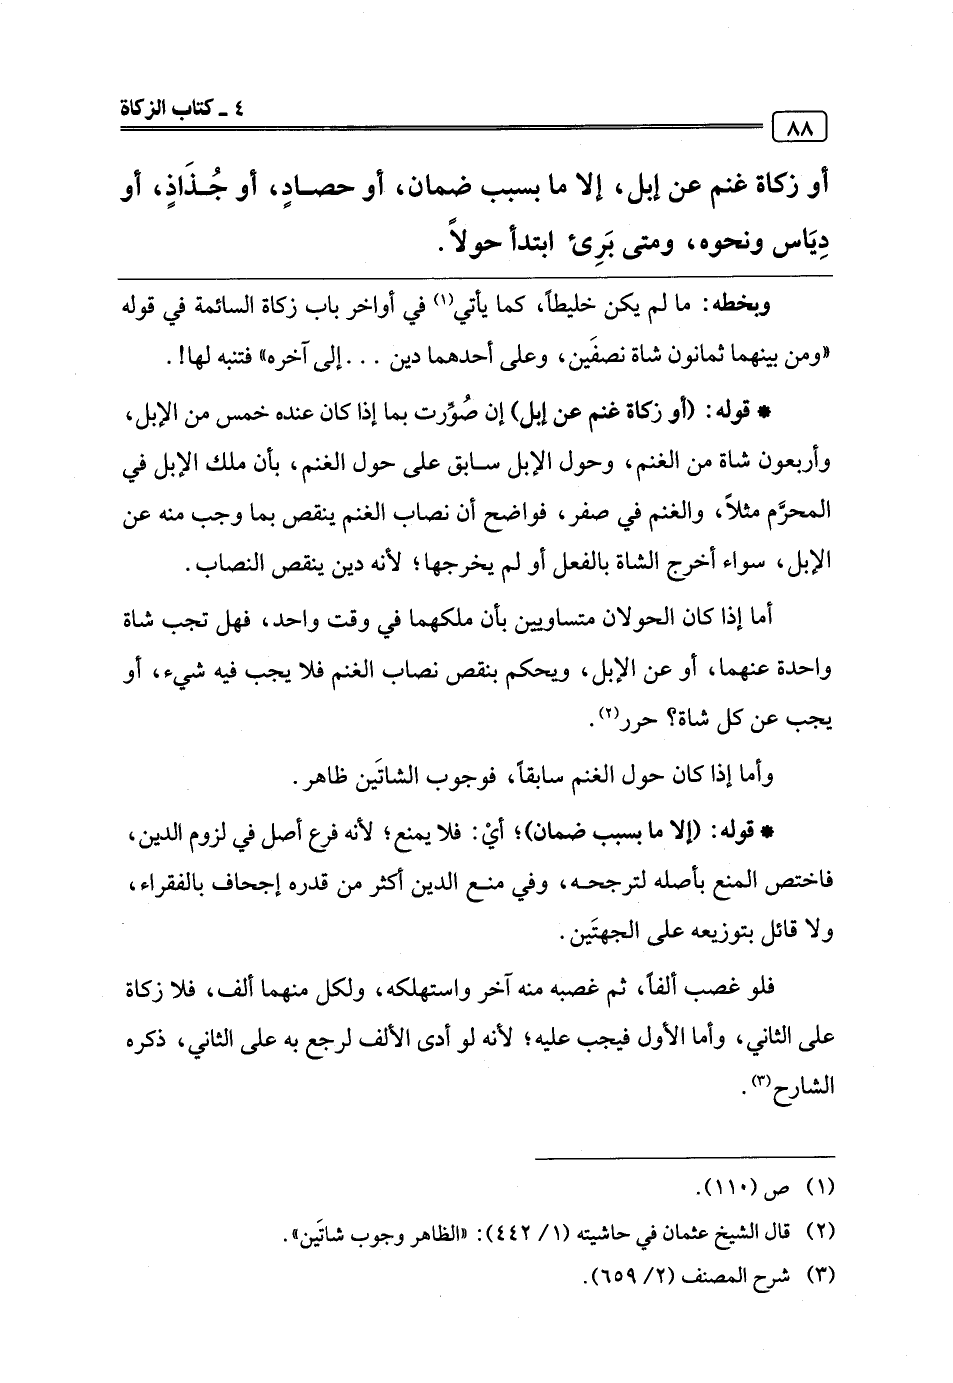 ٤ ـ كتاب الزكاة
٨٨
أو زكاة غنم عن إبل، إلا ما بسبب ضمان، أو حصـادٍ، أو جُـذَاذٍ، أو
دِيَاس ونحوه، ومتى بَرِئ ابتدأ حولاً.
وبخطه: ما لم يكن خليطاً، كما يأتي(١) في أواخر باب زكاة السائمة في قوله
«ومن بينهما ثمانون شاة نصفَين، وعلى أحدهما دين ... إلى آخره» فتنبه لها!.
* قوله: (أو زكاة غنم عن إبل) إن صُوِّرت بما إذا كان عنده خمس من الإبل،
وأربعون شاة من الغنم، وحول الإبل سـابق على حول الغنم، بأن ملك الإبل في
المحرَّم مثلاً، والغنم في صفر، فواضح أن نصاب الغنم ينقص بما وجب منه عن
الإبل، سواء أخرج الشاة بالفعل أو لم يخرجها؛ لأنه دين ينقص النصاب.
أما إذا كان الحولان متساويين بأن ملكهما في وقت واحد، فهل تجب شاة
واحدة عنهما، أو عن الإبل، ويحكم بنقص نصاب الغنم فلا يجب فيه شيء، أو
يجب عن كل شاة؟ حرر(٢).
وأما إذا كان حول الغنم سابقاً، فوجوب الشاتَين ظاهر.
* قوله: (إلا ما بسبب ضمان)؛ أيْ: فلا يمنع؛ لأنه فرع أصل في لزوم الدين،
فاختص المنع بأصله لترجحـه، وفي منـع الدين أكثر من قدره إجحاف بالفقراء،
ولا قائل بتوزيعه على الجهتَين.
فلو غصب ألفاً، ثم غصبه منه آخر واستهلكه، ولكل منهما ألف، فلا زكاة
على الثاني، وأما الأول فيجب عليه؛ لأنه لو أدى الألف لرجع به على الثاني، ذكره
الشارح(٣).
(١) ص (١١٠).
(٢) قال الشيخ عثمان في حاشيته (١/ ٤٤٢): «الظاهر وجوب شاتَين».
(٣) شرح المصنف (٢/ ٦٥٩).